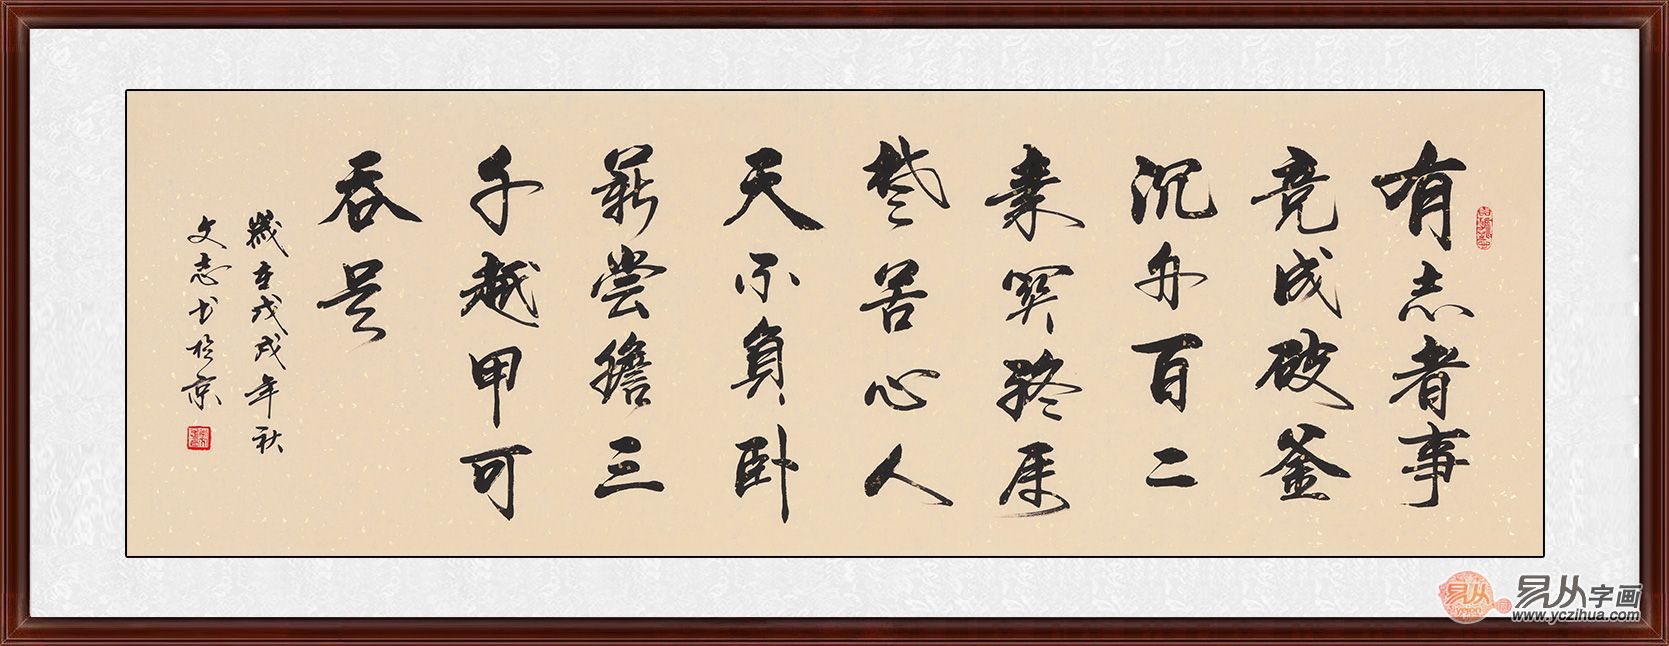 有志者事
竟成破釜
沉舟百二
秦関終属
楚苦心人
天不負卧
薪嘗膽三
千越甲可
吞吴
歲在戊戌年秋
文志书於京
易从
易从字画
www.yczihua.com